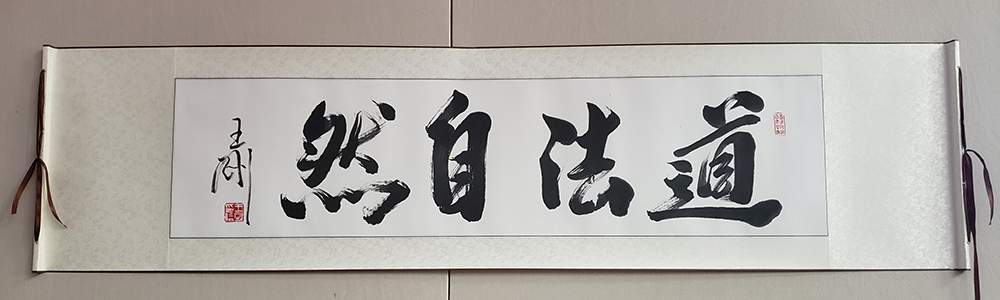 道法自然
王刚